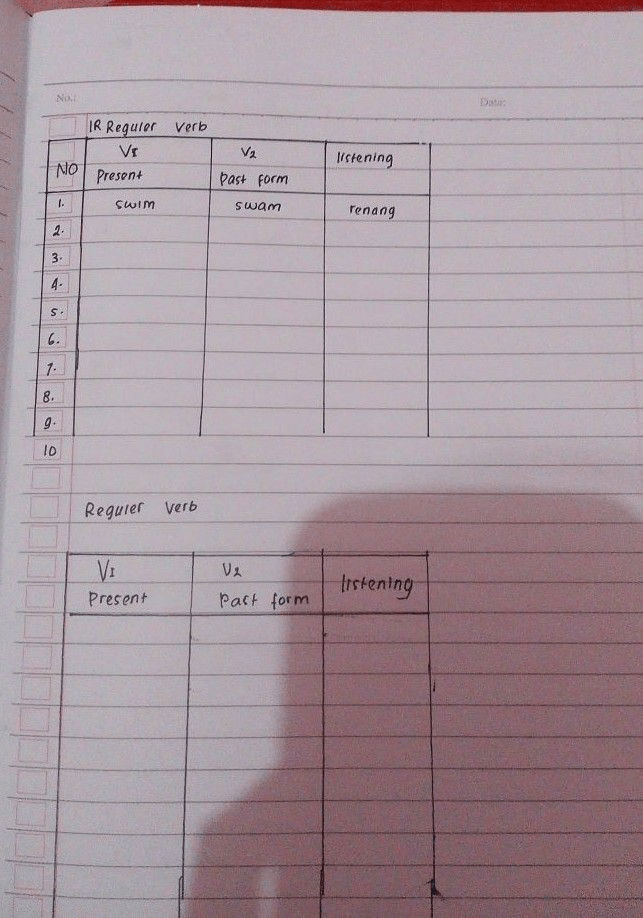 No.:
Date:
IR Reguler Verb
NO V1 Present V2 Past form listening
1. swim swam renang
2.
3.
4.
5.
6.
7.
8.
9.
10
Reguler Verb
V1 V2 listening
Present Past form